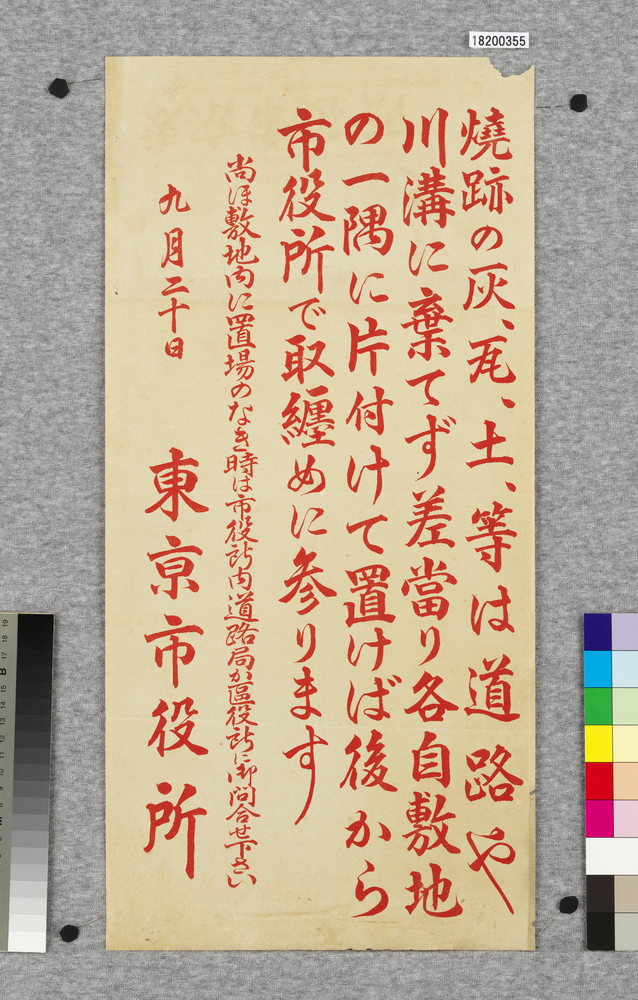 18200355
燒跡の灰、瓦、土、等は道路や
川溝に棄てず差當り各自敷地
の一隅に片付けて置けば後から
市役所で取纏めに参ります
尚ほ敷地内に置場のなき時は市役所内道路局か區役所に御問合せ下さい
九月二十日
東京市役所